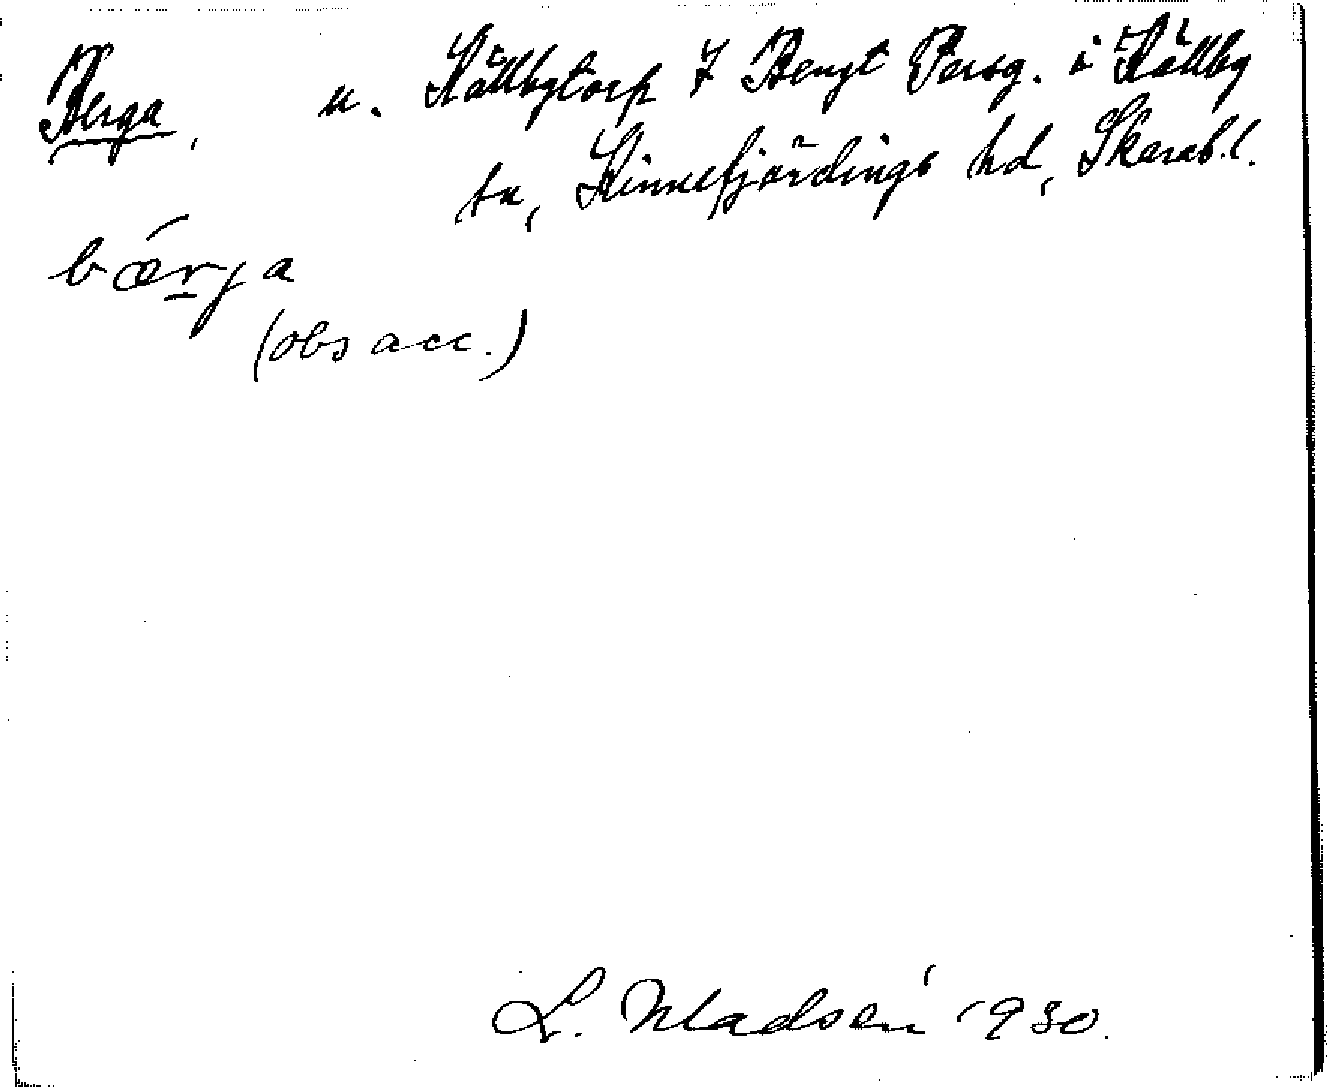 Berga, u. Källbytorp 7 Bengt Persg. i Källby
sn, Kinnefjärdings hd, Skarab.l.
bærja
(obs acc.)
L. Madsén 1930.